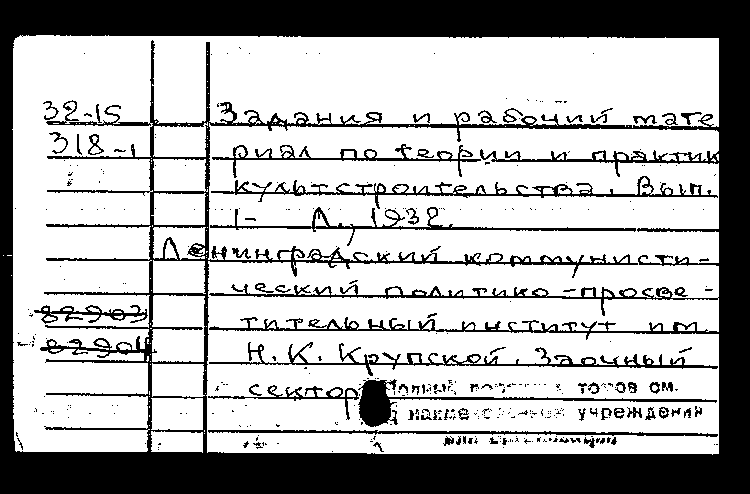 32-15
318-1
Задания и рабочий мате
риал по теории и практик
культстроительства. Вып.
1- Л., 1932.
Ленинградский коммунисти-
ческий политико-просве-
тительный институт им.
Н.К. Крупской. Заочный
сектор
82903
82904
Полный томов см.
учреждения
или организации